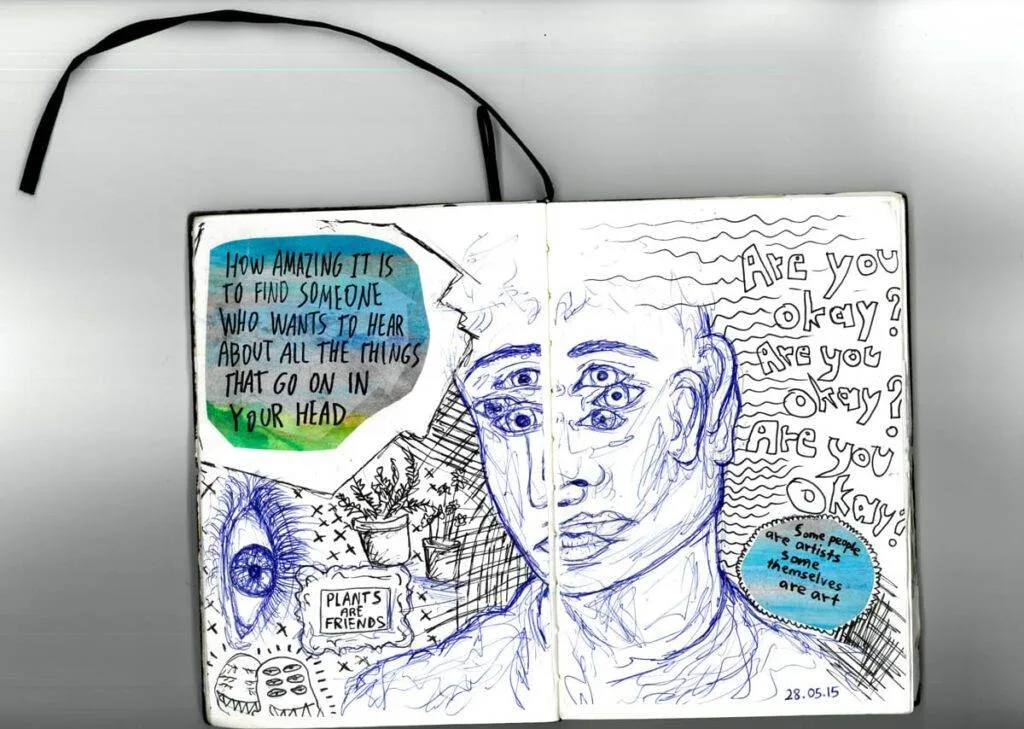 HOW AMAZING IT IS
TO FIND SOMEONE
WHO WANTS TO HEAR
ABOUT ALL THE THINGS
THAT GO ON IN
YOUR HEAD
PLANTS
ARE
FRIENDS
Are you
okay?
Are you
okay?
Are you
okay?
Some people
are artists
some
themselves
are art
28.05.15